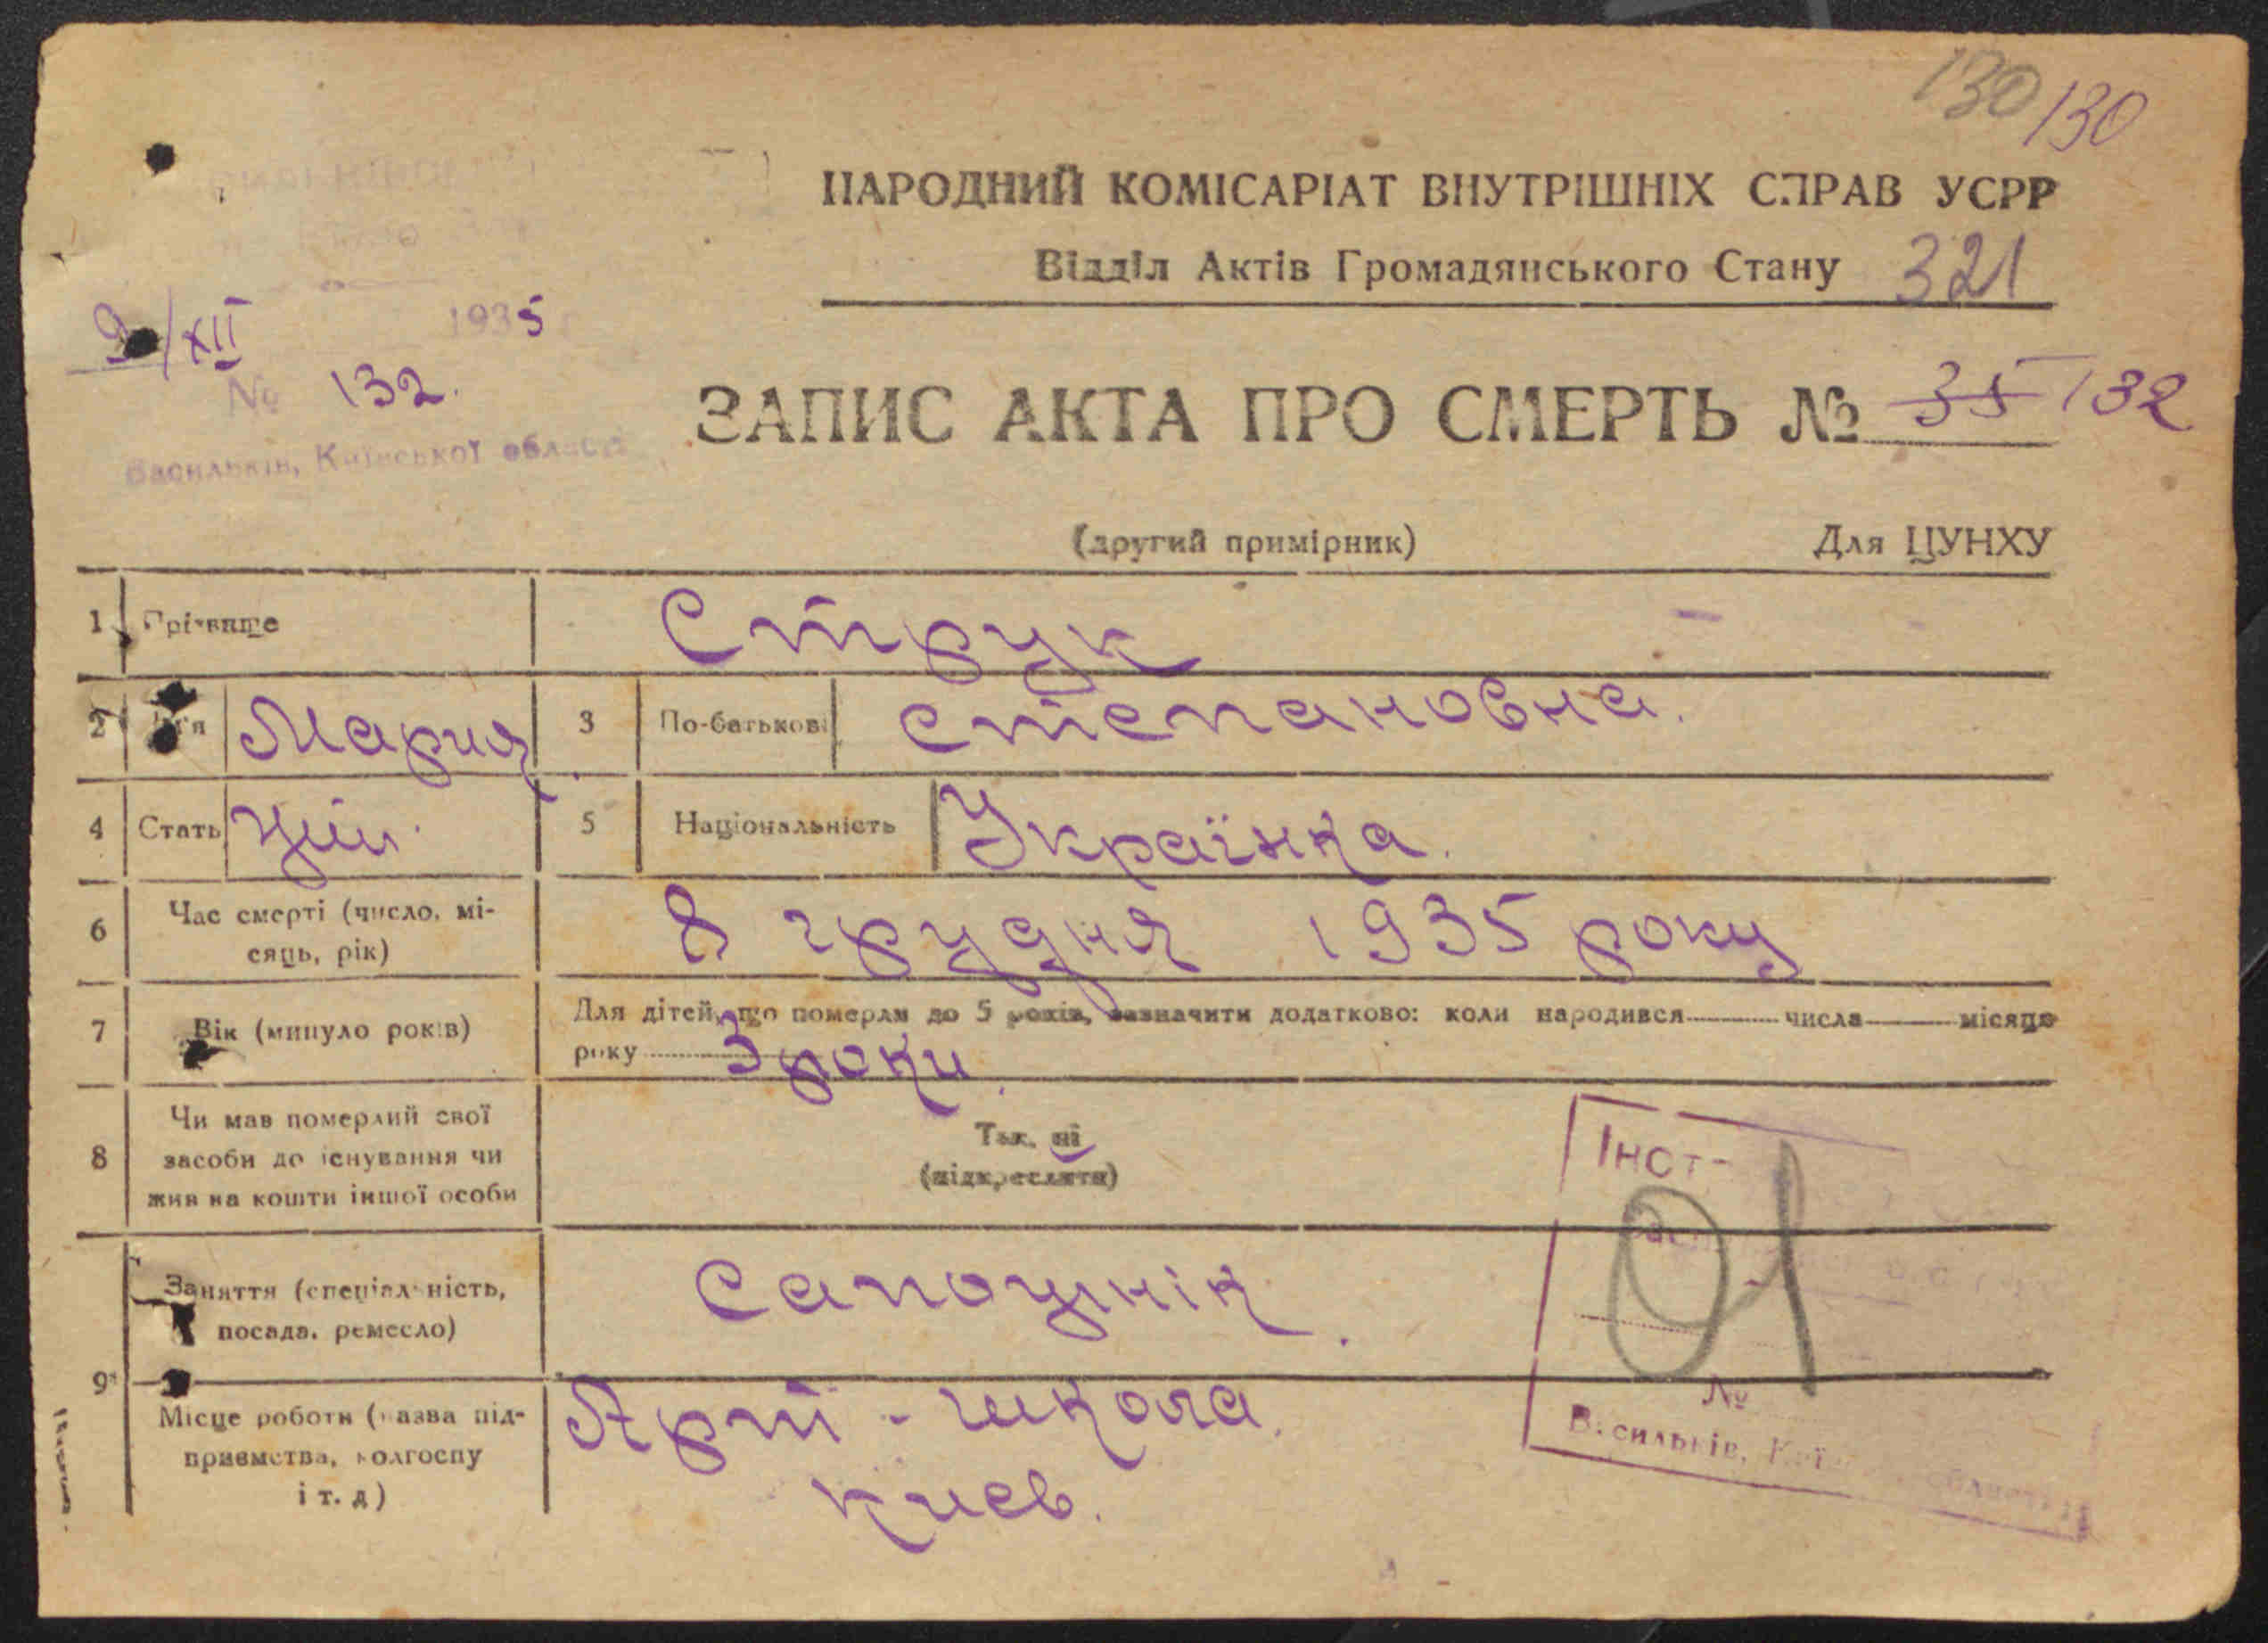 130 130
НАРОДНИЙ КОМІСАРІАТ ВНУТРІШНІХ СПРАВ УСРР
Відділ Актів Громадянського Стану 321
9/XII 1935
№ 132.
Васильків, Київської області
ЗАПИС АКТА ПРО СМЕРТЬ № 35 132
(другий примірник) Для ЦУНХУ
1 Прізвище Струк
2 Ім'я Мария 3 По-батькові Степановна.
4 Стать жін. 5 Національність Українка.
6 Час смерті (число, мі-
сяць, рік) 8 грудня 1935 року
7 Вік (минуло років) Для дітей, що померли до 5 років, зазначити додатково: коли народився числа місяця
року 3 роки.
8 Чи мав померлий свої
засоби до існування чи
жив на кошти іншої особи
Так, ні
(підкреслити)
Інст-
9 Заняття (спеціальність,
посада, ремесло) Сапожнік.
Місце роботи (назва під-
приємства, колгоспу
і т. д)
Арт - школа.
Киев.
91
№
Васильків, Київської області